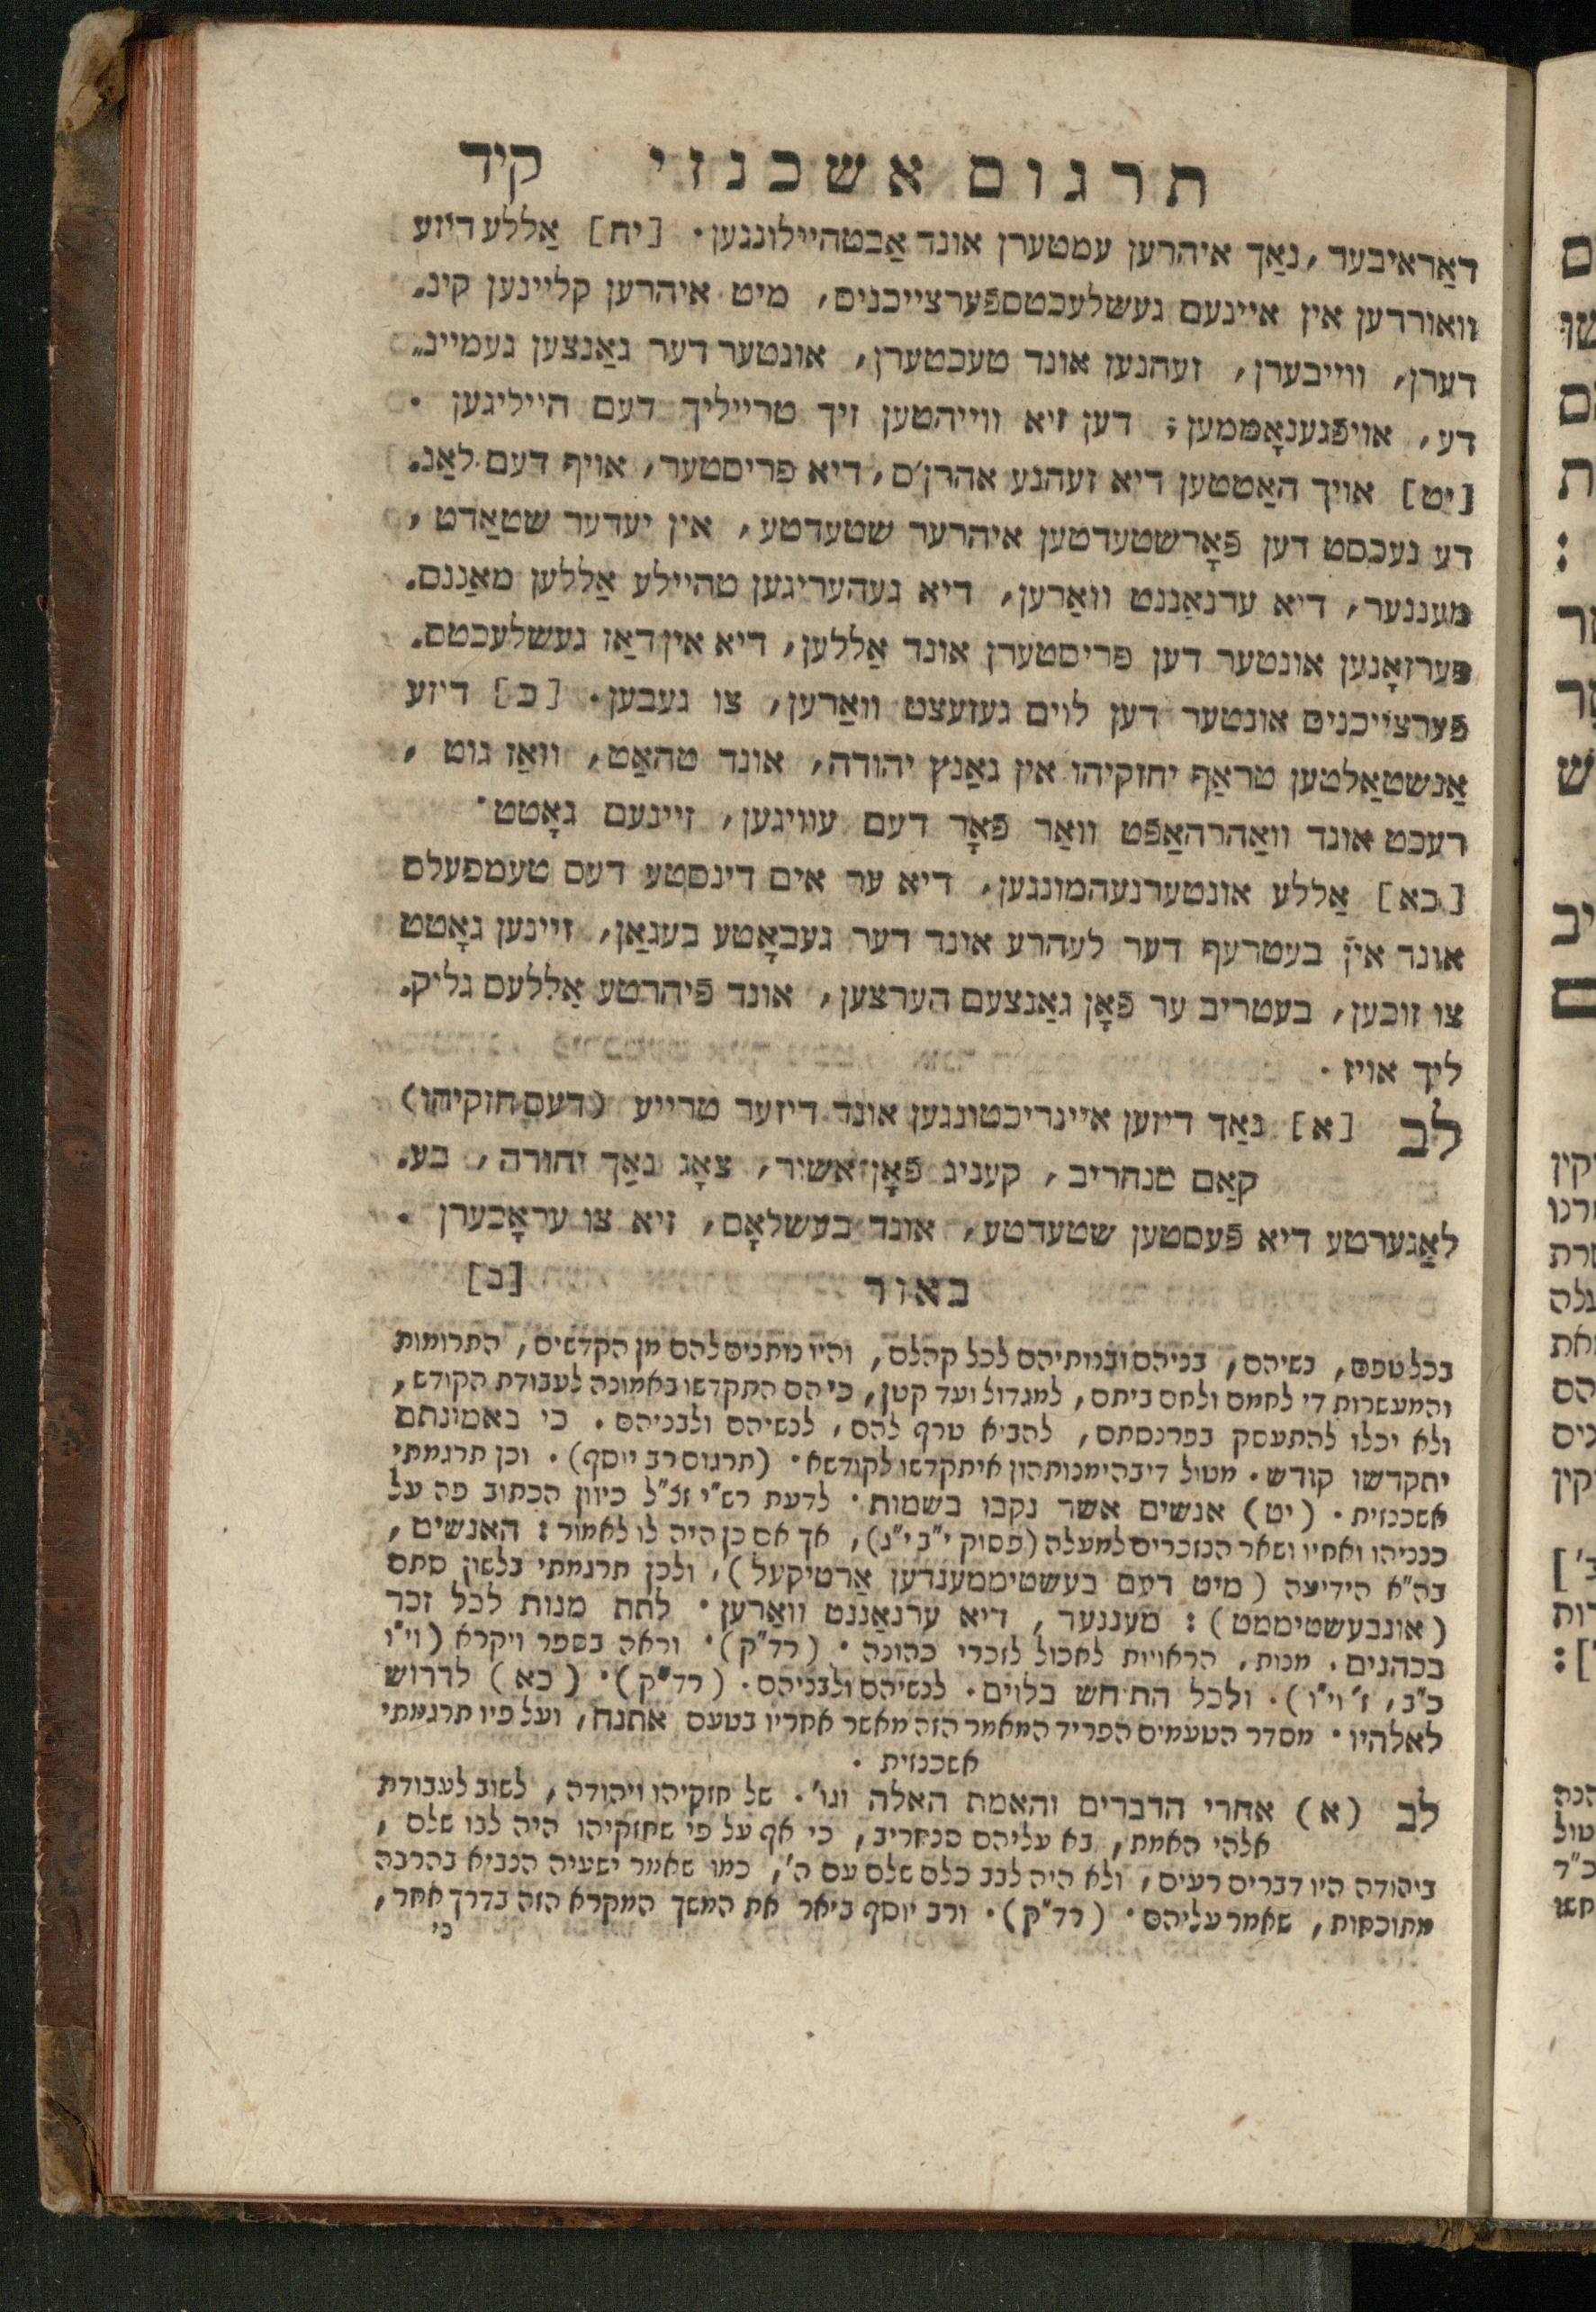 תרגום אשכנזי קיד
דאַראיבער, נאַך איהרען עמטערן אונד אַבטהיילונגען. [יח] אַללע דיזע
וואורדען אין איינעם געשלעכטספֿערצייכניס, מיט איהרען קליינען קינ-
דערן, ווייבערן, זעהנען אונד טעכטערן, אונטער דער גאַנצען געמיינ-
דע, אויפֿגענאָממען; דען זיא ווייהטען זיך טרייליך דעם הייליגען.
[יט] אויך האַטטען דיא זעהנע אהרן'ס, דיא פריסטער, אויף דעם לאַנ-
דע נעכסט דען פֿאָרשטעדטען איהרער שטעדטע, אין יעדער שטאַדט,
מעננער, דיא ערנאַננט וואַרען, דיא געהעריגען טהיילע אַללען מאַננס-
פערזאָנען אונטער דען פריסטערן אונד אַללען, דיא אין דאַז געשלעכטס-
פֿערצייכניס אונטער דען לוים געזעצט וואַרען, צו געבען. [כ] דיזע
אַנשטאַלטען טראַף יחזקיהו אין גאַנץ יהודה, אונד טהאַט, וואַז גוט,
רעכט אונד וואַהרהאַפֿט וואַר פֿאָר דעם עוויגען, זיינעם גאָטט.
[כא] אַללע אונטערנעהמונגען, דיא ער אים דינסטע דעס טעמפעלס
אונד אין בעטרעף דער לעהרע אונד דער געבאָטע בעגאַן, זיינען גאָטט
צו זוכען, בעטריב ער פֿאָן גאַנצעם הערצען, אונד פֿיהרטע אַללעס גליק-
ליך אויז.
לב [א] נאַך דיזען איינריכטונגען אונד דיזער טרייע (דעס חזקיהו)
קאַם סנחריב, קעניג פֿאָן אשור, צאָג נאַך יהודה, בע-
לאַגערטע דיא פֿעסטען שטעדטע, אונד בעשלאָס, זיא צו עראָבערן.
באור [ב]
בכל טפם, נשיהם, בניהם ובנותיהם לכל קהלם, והיו נותנים להם מן הקדשים, התרומות
והמעשרות די לחמם ולחם ביתם, למגדול ועד קטן, כי הם התקדשו באמונה לעבודת הקודש,
ולא יכלו להתעסק בפרנסתם, להביא טרף להם, לנשיהם ולבניהם. כי באמונתם
יתקדשו קודש. מטול דיבהימנותהון איתקדשו לקודשא. (תרגום רב יוסף). וכן תרגמתי
אשכנזית. (יט) אנשים אשר נקבו בשמות. לדעת רש"י ז"ל כיוון הכתוב פה על
כנניהו ואחיו ושאר הנזכרים למעלה (פסוק י"ב י"ג), אך אם כן היה לו לאמור: האנשים,
בה"א הידיעה (מיט דעם בעשטיממענדען אַרטיקעל), ולכן תרגמתי בלשון סתם
(אונבעשטיממט): מעננער, דיא ערנאַננט וואַרען. לתת מנות לכל זכר
בכהנים. מנות, הראויות לאכול לזכרי כהונה. (רד"ק). וראה בספר ויקרא (וי"ו
כ"ב, ז' וי"ו). ולכל התיחש בלוים. לנשיהם ולבניהם. (רד"ק). (כא) לדרוש
לאלהיו. מסדר הטעמים הפריד המאמר הזה מאשר אחריו בטעם אתנח, ועל פיו תרגמתי
אשכנזית.
לב (א) אחרי הדברים והאמת האלה וגו'. של חזקיהו ויהודה, לשוב לעבודת
אלהי האמת, בא עליהם סנחריב, כי אף על פי שחזקיהו היה לבו שלם,
ביהודה היו דברים רעים, ולא היה לבב כלם שלם עם ה', כמו שאמר ישעיה הנביא בהרבה
מתוכחות, שאמר עליהם. (רד"ק). ורב יוסף ביאר את המשך המקרא הזה בדרך אחר,
כי